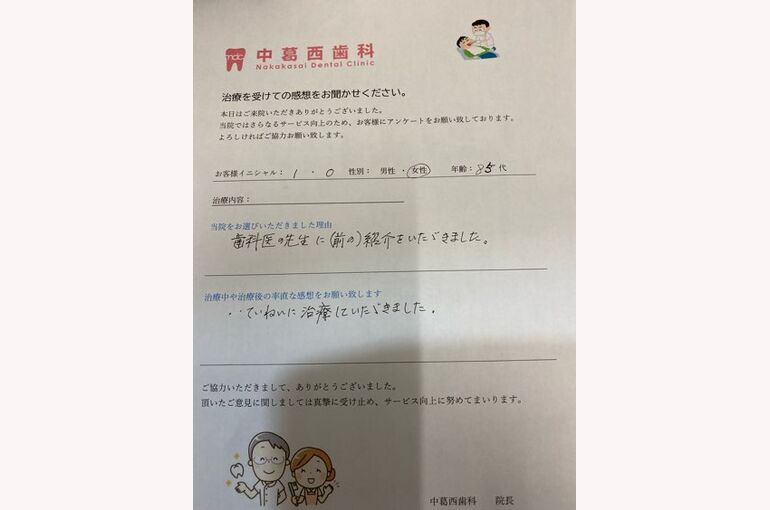 ndc
中葛西歯科
Nakakasai Dental Clinic
治療を受けての感想をお聞かせください。
本日はご来院いただきありがとうございました。
当院ではさらなるサービス向上のため、お客様にアンケートをお願い致しております。
よろしければご協力お願い致します。
お客様イニシャル： 1 ・ 0 性別： 男性 ・ 女性 年齢： 85 代
治療内容：
当院をお選びいただきました理由
歯科医の先生に(前の)紹介をいただきました。
治療中や治療後の率直な感想をお願い致します
・・ていねいに治療していただきました．
ご協力いただきまして、ありがとうございました。
頂いたご意見に関しましては真摯に受け止め、サービス向上に努めてまいります。
中葛西歯科 院長